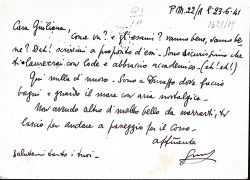 P.M. 22/A 1.23-6-41
Cara Giuliana,
Come va? e gl'esami? vanno bene, vanno be-
ne? Deh! scrivimi a proposito d'essi. Sono sicurissimo che
ti laureerai con lode e abbraccio accademico. (eh! eh!)
Qui nulla di nuovo. Sono a Durazzo dove faccio
bagni e guardo il mare con aria nostalgica.
Non avendo altro di molto bello da narrarti, ti
lascio per andare a passeggio per il corso.
Affmente
Salutami tanto i tuoi.